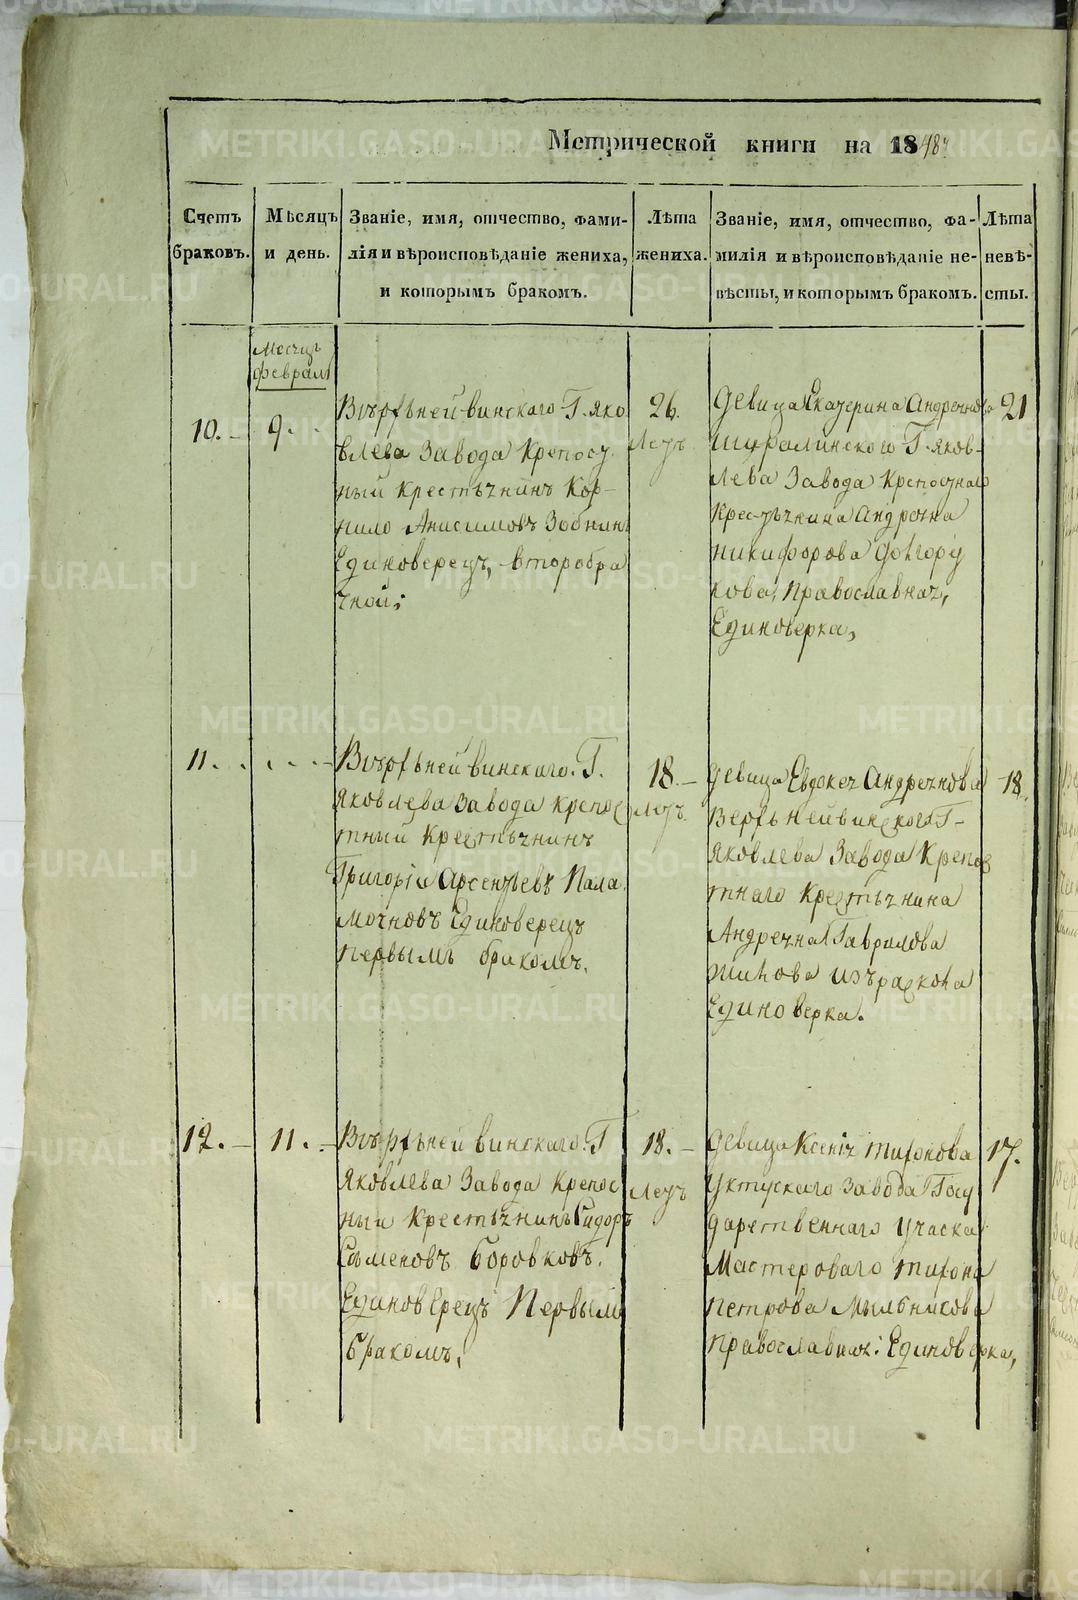 Метрической книги на 1848
Счетъ браковъ.
Мѣсяцъ и день.
Званіе, имя, отчество, фами-
лія и вѣроисповѣданіе жениха,
и которымъ бракомъ.
Лѣта
жениха.
Званіе, имя, отчество, фа-
милія и вѣроисповѣданіе не-
вѣсты, и которымъ бракомъ.
Лѣта
невѣ-
сты.
Месяц
февраль
10.
9.
Вѣрхънейвинскаго Г. яко
влева Завода Крепосу
ный крестьянинъ Кор-
нило Анисимовъ Зобнин
Единоверецъ, второбра
чной;
26.
Летъ
Девица Екатерина Андреянова
Шуралинского Г. яков-
лева Завода Крепоснаго
Крестьянина Андреяна
Никифорова Долгору
кова, Православная,
Единоверка,
21
11.
Вѣрхънейвинскаго. Г.
Яковлева Завода крепос
тный Крестьянинъ
Григорій Арсентьевъ Пала
мочновъ Единоверецъ
первымъ бракомъ.
18.
летъ
девица Евдокея Андреянова
Верхънейвинского Г-
яковлева Завода Крепос
тнаго Крестьянина
Андреяна Гаврилова
изъраскола
Единоверка.
18.
12.
11.
Вѣрхънейвинскаго. Г
Яковлева Завода Крепос
ный Крестьянинъ Сидоръ
Сѣменовъ Боровковъ.
Единоверецъ Первымъ
бракомъ,
18.
Летъ
девица Ксенія Тихонова
Уктускаго Завода Госу
дарственнаго участка
Мастероваго Тихона
Петрова Мыльникова
православная: Единоверка,
17.